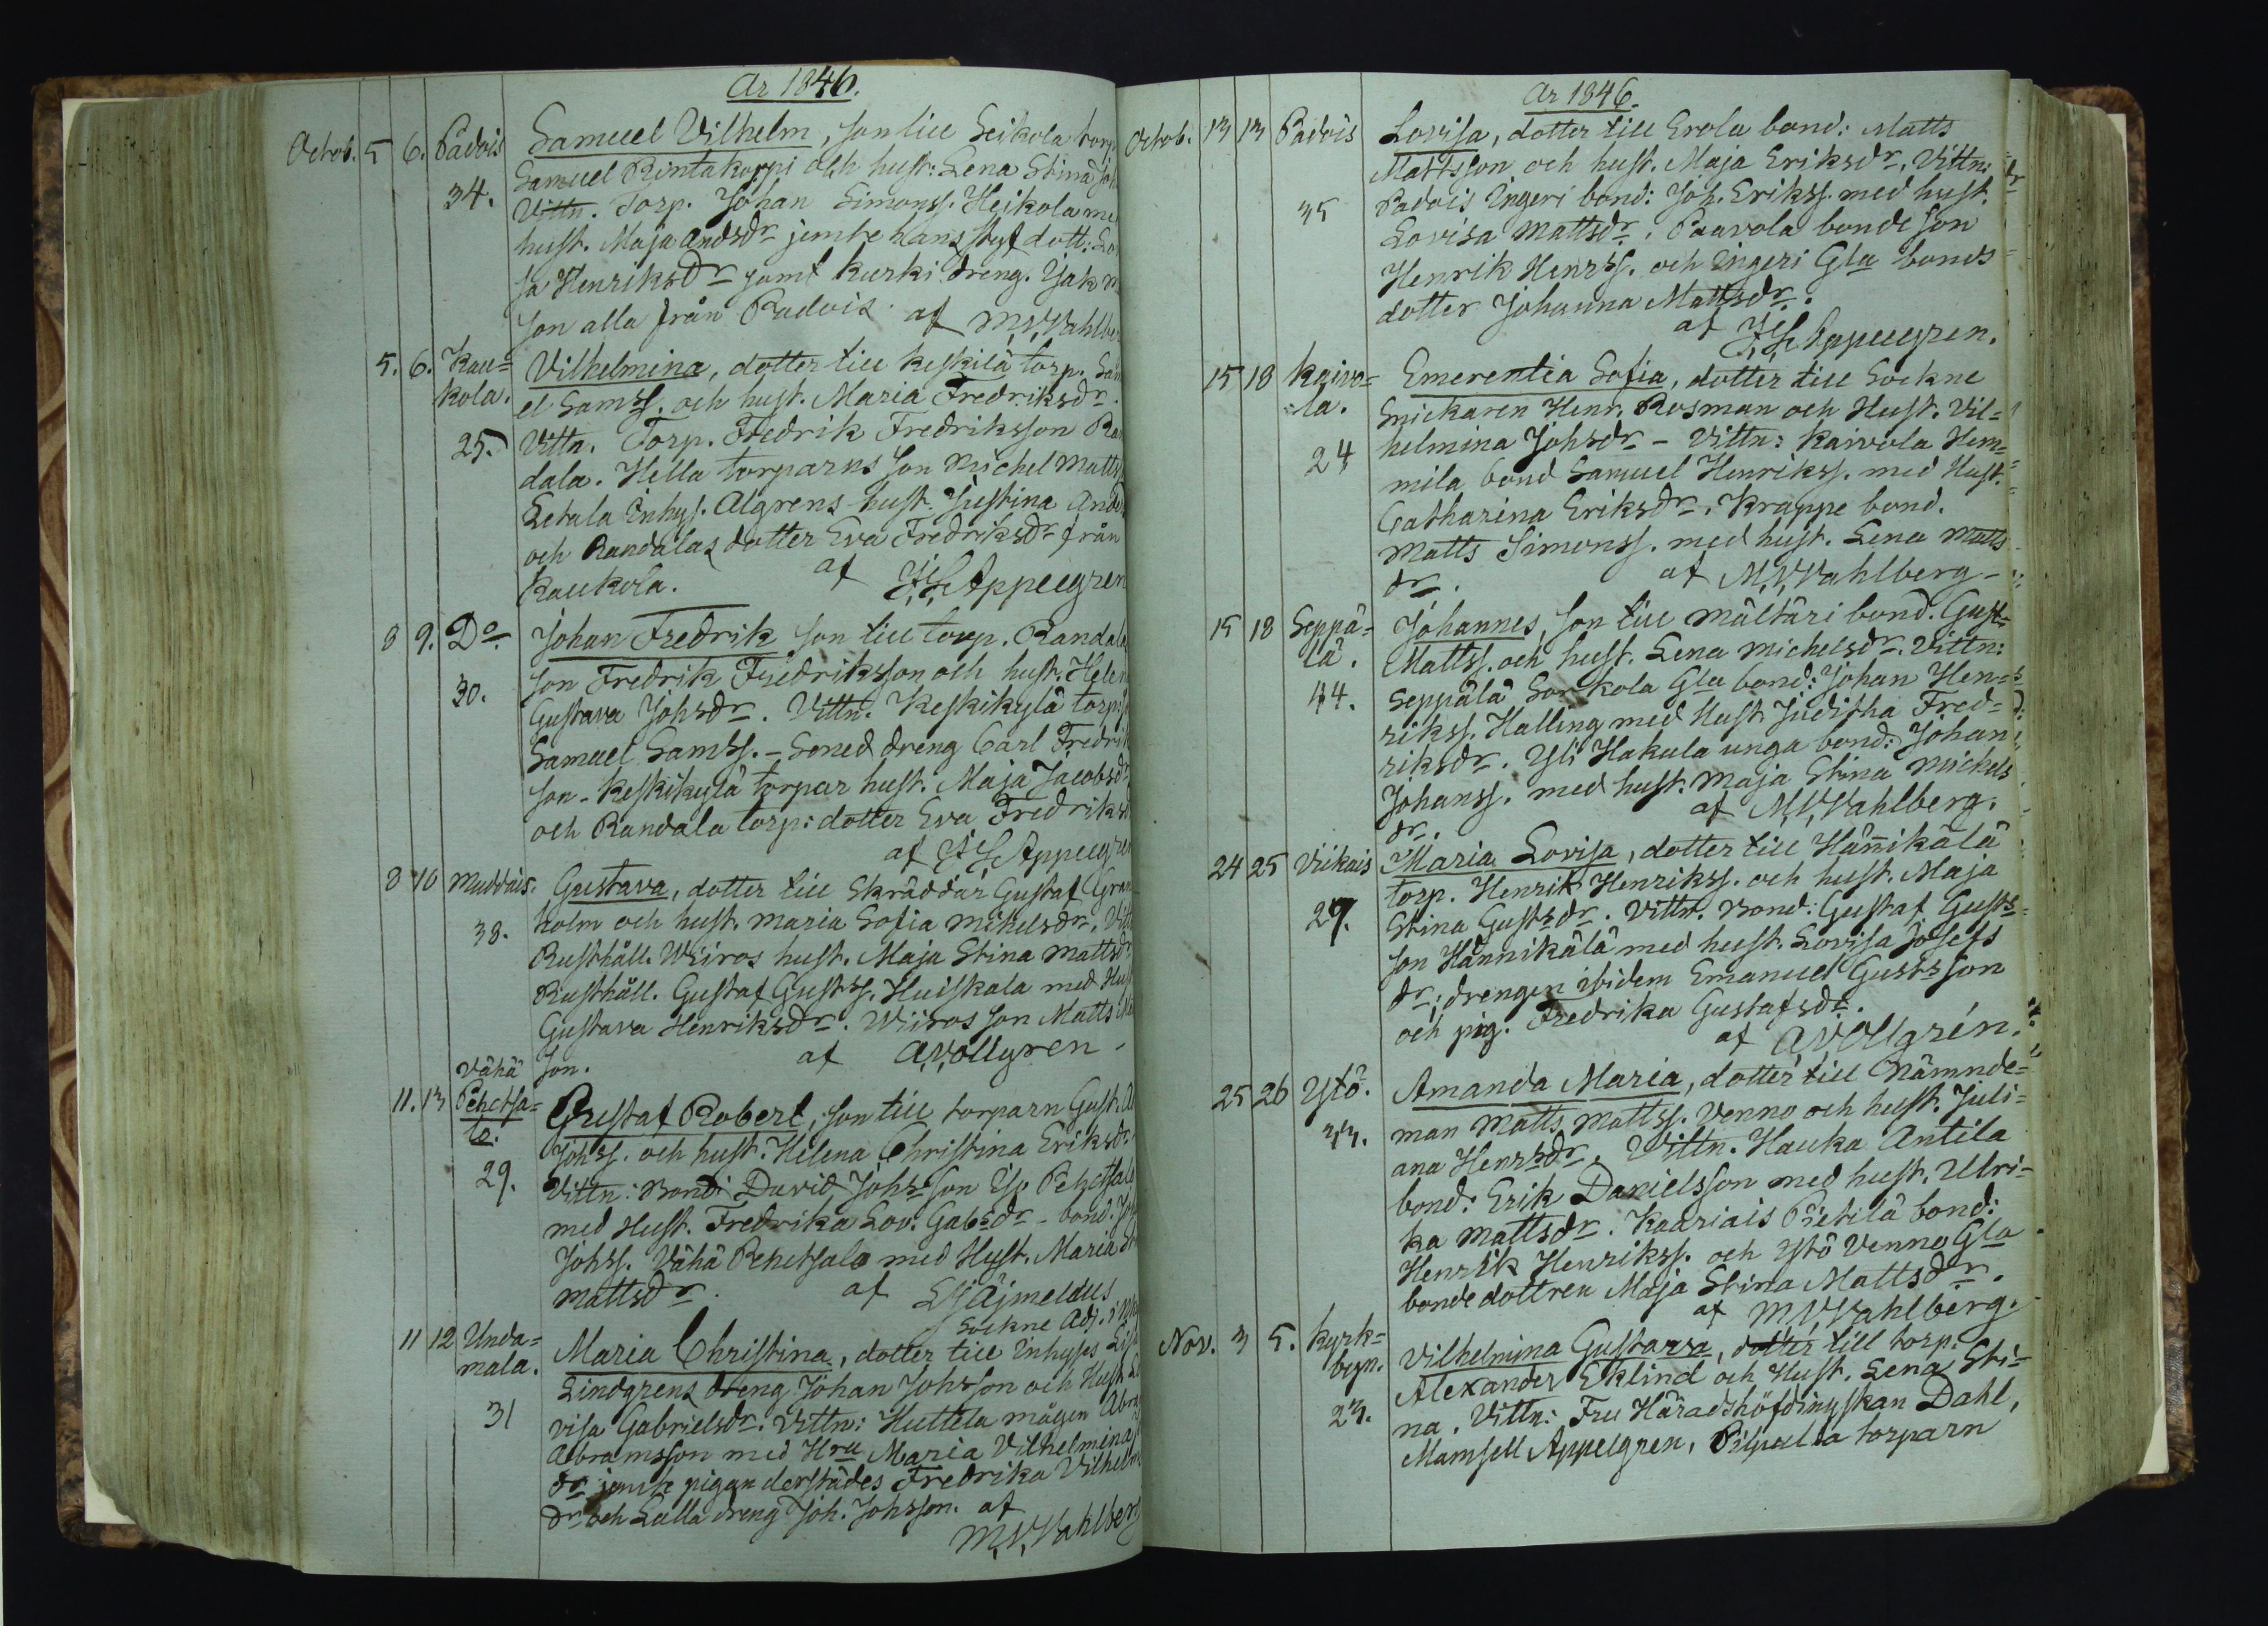 Ar 1846.
Octob. 5 6. Padois Samuel Vilhelm, son till Seikola torp
Samuel Rintakorpi och hust: Lena Stina Joh
34. Vittn. Torp. Johan Simonss. Heikola me
hust. Maja Andsdr jemte hans styf dott: Lo
sa Henriksdr samt Kurki dreng. Isak M
son alla från Padois. af M,V,Vahlber
5. 6. Kau= Vilhelmina, dotter till Keskilä torp. Sam
kola. el Samss. och hust. Maria Fredriksdr.
25. Vittn. Torp. Fredrik Fredriksson Ran
dala. Hella torparns son Michel Matts
Setala Inhys. Algrens hust. Justina Anders
och Randalas dotter Eva Fredriksdr från
Kaukola. af Appelgren
8 9. Do Johan Fredrik son till torp. Randala
30. son Fredrik Fredriksson och hust. Helen
Gustava Johsdr. Vittn. Keskikylä torp:
Samuel Samss. – dreng Carl Fredrik
son – Keskikylä torpar hust. Maja Jacobsdr
och Randala torp: dotter Eva Fredriksd
af Appelgren
8 10 Muddais. Gustava, dotter till Skräddar Gustaf Gran
38. holm och hust. Maria Sofia Mikelsdr. Vitt
Rusthåll. Wiiros hust. Maja Stina Mattsdr
Rusthåll. Gustaf Gustss. Huiskala med Hust
Gustava Henriksdr. Wiiros son Matts
son. af A,V,Ollgren –
Vähä
11. 13 Pehctsa= Gustaf Robert, son till torparn Gust. A
lo. Johss. och hust. Helena Christina Eriksdr.
29. Vittn: Bondi David Johsson Iso Pehctsalo
med Hust. Fredrika Lov. Gabsdr – bond. Joh
Johss. Vähä Pehctsalo med Hust. Maria St
Mattsdr. af Äjmelæus
Sockne Adj. i
11 12 Unda= Maria Christina, dotter till Inhyses
mala. Lindgrens dreng Johan Johsson och Hust Lo
31 visa Gabrielsdr. Vittn: Huttila mågen Abra
Abramsson med Hru Maria Vilhelmina
dr jemte pigan derstädes Fredrika Vilhelm
dr och Lalla dreng Joh. Johsson. af
M,V,Vahlberg
Ar 1846.
Octob. 13 13 Padois Lovisa, dotter till Erola bond: Matts
Mattsson och hust. Maja Eriksdr. Vittn:
35 Padois Ingeri bond: Joh. Erikss. med hust.
Lovisa Mattsdr. Paavola bonde son
Henrik Henrss. och Ingeri Gla bonds
dotter Johanna Mattsdr.
af Appelgren.
15 18 Kaivo= Emerentia Sofia, dotter till Sockne
=la. Snickaren Henr. Rosman och Hust. Vil=
24 helmina Johsdr – Vittn: Kaivola Hem=
mila bond Samuel Henrikss. med Hust.
Catharina Eriksdr. Krappe bond.
Matts Simonss. med hust. Lena Matts
dr. af M,V,Vahlberg –
15 18 Seppä= Johannes, son till Mältäri bond. Gust=
lä. Mattss. och hust. Lena Michelsdr. Vittn:
44. Seppälä Sorkola Gla bond: Johan Hen=
rikss. Halling med Hust. Juditha Fred=
riksdr. Yli Hakula unga bond: Johan
Johanss. med hust. Maja Stina Mickels
dr. af M,V,Vahlberg.
24 25 Viikais Maria Lovisa, dotter till Hännikälä
torp. Henrik Henrikss. och hust. Maja
29. Stina Gustsdr. Vittn. Bond: Gustaf Gusts=
son Hännikälä med hust. Lovisa Josefs
dr: drengen ibidem Emanuel Gustsson
och pig. Fredrika Gustafsdr.
af A,V,Ollgrén.
25 26 Ytö. Amanda Maria, dotter till Nämnde=
33. man Matts Mattss. Venno och hust. Juli=
ana Henrsdr. Vittn. Hauka Antila
bond: Erik Danielsson med hust. Ulri=
ka Mattsdr. Kaariais Pietilä bond:
Henrik Henrikss. och Ytö Venno Gla
bonde dottren Maja Stina Mattsdr.
af M,V,Vahlberg.
Nov. 3 5. Kyrk= Vilhelmina Gustava, dotter till torp:
byn. Alexander Eklind och Hust. Lena Sti=
23. na. Vittn: Fru Häradshöfdingskan Dahl,
Mamsell Appelgren, Pilpala torparn